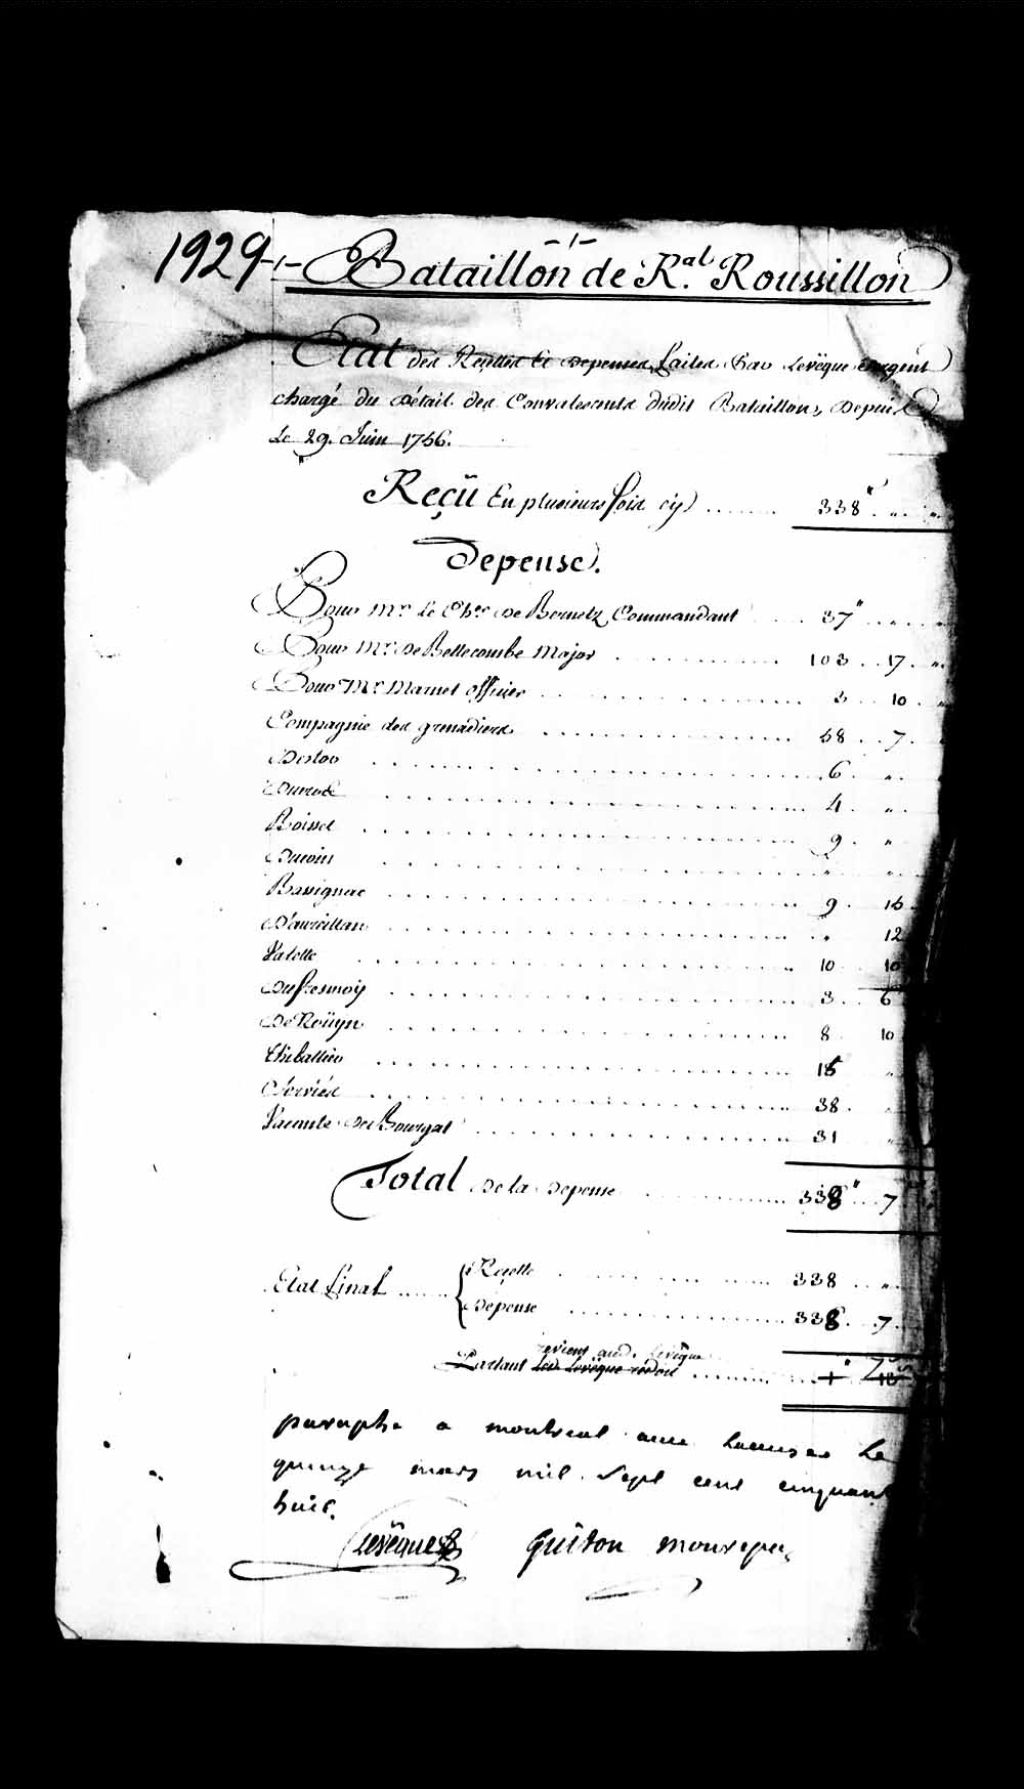 1929
-1-
-1- Bataillon de R.al Roussillon
Etat des Recettes Et Depenses faites Par Levëque Sergent
chargé du Détail des Convalescents dudit Bataillon, Depuis
Le 29. Juin 1756.
Reçü En plusieurs fois cy ........ 338" . " . "
Depense.
Pour Mr. Le Cher De Bernetz Commandant .... 37" ....
Pour Mr. De Bellecombe Major .......... 103 .. 17 . "
Pour Mr. Marnet officier .......... 3 .. 10 . "
Compagnie des grenadiers .......... 58 .. 7 .
.......... 6 . "
.......... 4 . "
Boisset .......... 9 . "
Ducoin .......... " . "
Bassignac .......... 9 . 15
D'aureillan .......... " . 12
Valette .......... 10 . 10
Dufresnoy .......... 3 .. 6
De Roüyn .......... 8 . 10
.......... 15 . "
.......... 38 . "
Vacante De Bourgat .......... 31 . "
Total De la Depense .......... 338" .. 7
Etat final ...... { Recette .......... 338 .. "
Depense .......... 338 .. 7
revient aud. Levêque
Partant Led. Levëque redoit .......... 1" 7s
paraphé a montreal le
quinze mars mil sept cent cinquant
huit.
Levëque Guiton monrepos